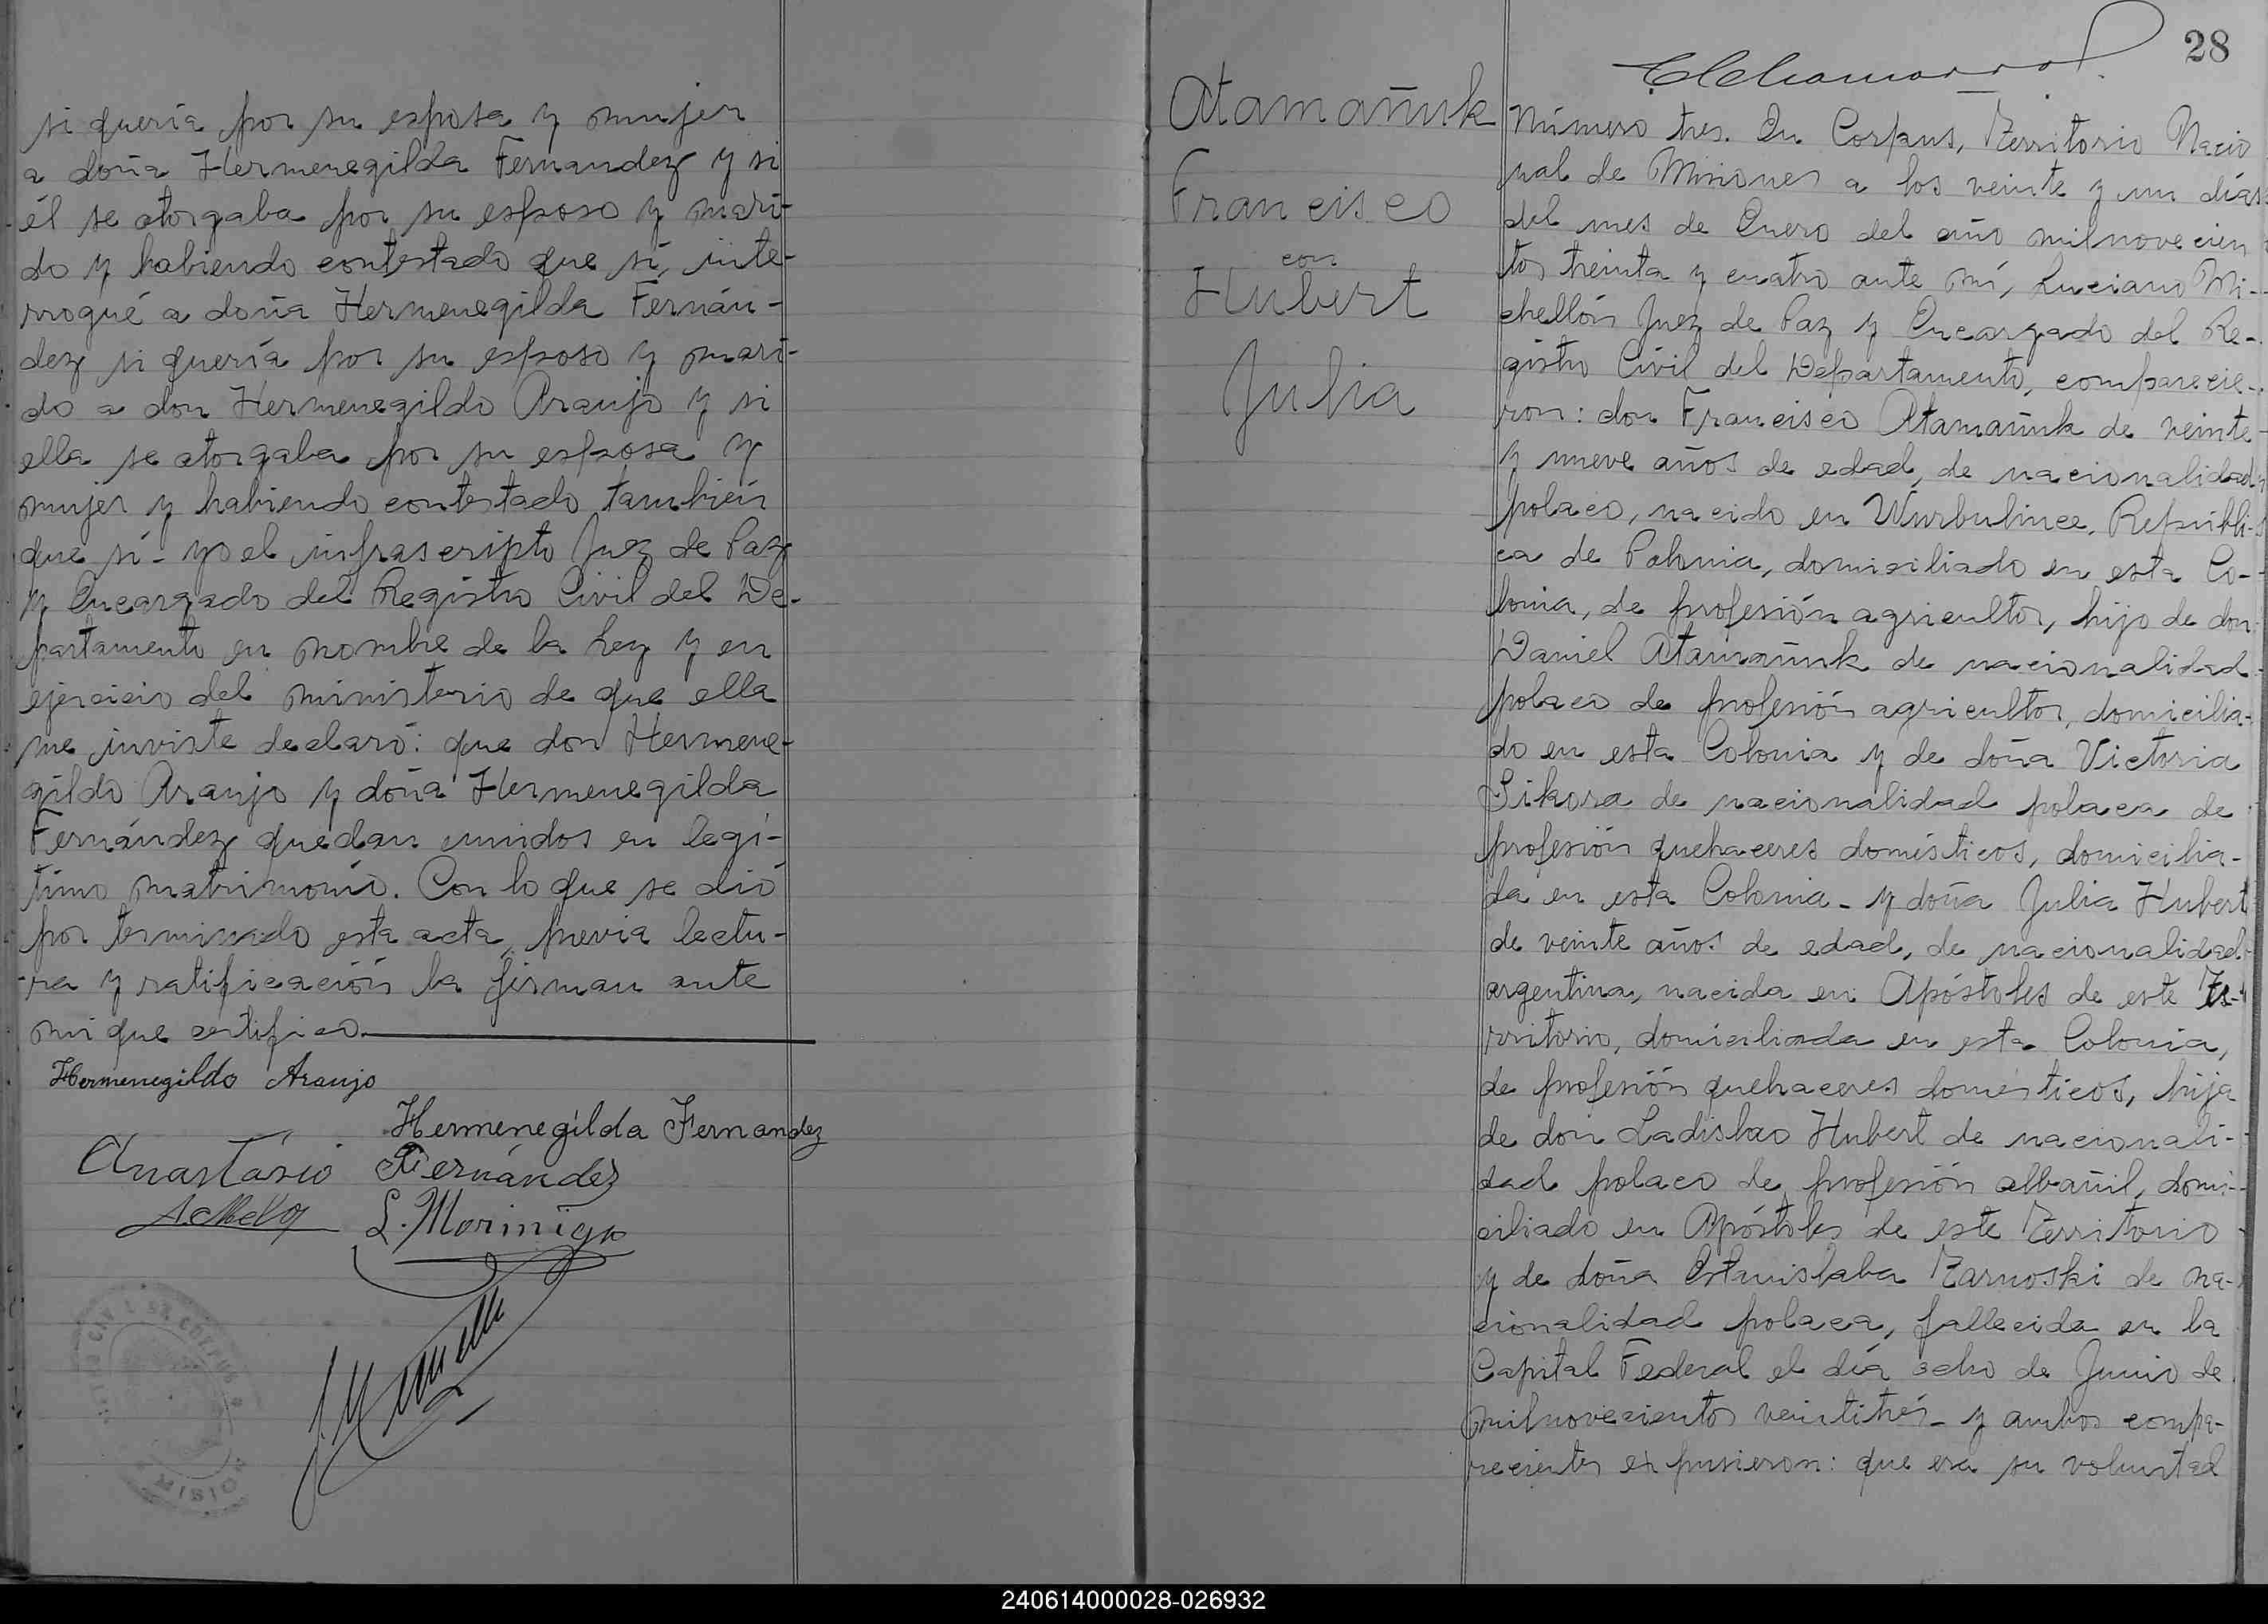 si quería por su esposa y mujer
a doña Hermenegilda Fernandez y si
él se otorgaba por su esposo y mari-
do y habiendo contestado que sí, inte-
rrogué a doña Hermenegilda Fernán-
dez si quería por su esposo y mari-
do a don Hermenegildo Araujo y si
ella se otorgaba por su esposa y
mujer y habiendo contestado también
que sí - yo el infrascripto Juez de Paz
y Encargado del Registro Civil del De-
partamento en nombre de la Ley y en
ejercicio del ministerio de que ella
me inviste declaró: que don Hermene-
gildo Araujo y doña Hermenegilda
Fernández quedan unidos en legí-
timo matrimonio. Con lo que se dió
por terminado esta acta, previa lectu-
ra y ratificación la firman ante
mi que certifico.
Hermenegildo Araujo
Hermenegilda Fernandez
Anastasio Fernández
L. Morinigo
28
Atamañuk
Francisco
con
Hubert
Julia
Número tres. En Corpus, Territorio Nacio
nal de Misiones a los veinte y un días
del mes de Enero del año milnovecien
tos treinta y cuatro ante mí, Luciano Mi-
chellón Juez de Paz y Encargado del Re-
gistro Civil del Departamento, comparecie-
ron: don Francisco Atamañuk de veinte
y nueve años de edad, de nacionalidad
polaco, nacido en Wurbulince, Repúbli-
ca de Polonia, domiciliado en esta Co-
lonia, de profesión agricultor, hijo de don
Daniel Atamañuk de nacionalidad
polaco de profesión agricultor, domicilia-
do en esta Colonia y de doña Victoria
Sikora de nacionalidad polaca de
profesión quehaceres domésticos, domicilia-
da en esta Colonia - y doña Julia Hubert
de veinte años de edad, de nacionalidad
argentina, nacida en Apóstoles de este Te-
rritorio, domiciliada en esta Colonia,
de profesión quehaceres domésticos, hija
de don Ladislao Hubert de nacionali-
dad polaco de profesión albañil, domi-
ciliado en Apóstoles de este Territorio
y de doña Estanislaba Zarnoski de na-
cionalidad polaca, fallecida en la
Capital Federal el día ocho de Junio de
milnovecientos veintitrés - y ambos compa-
recientes expusieron: que era su voluntad
240614000028-026932